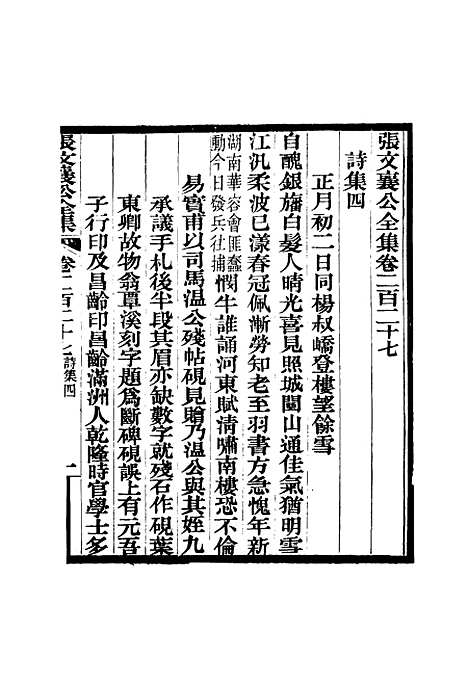 張文襄公全集卷二百二十七
詩集四
正月初二日同楊叔嶠登樓望餘雪
自醜銀旛白髮人晴光喜見照城闉山通佳氣猶明雪
江汎柔波已漾春冠佩漸勞知老至羽書方急愧年新
湖南華容會匪蠢
動今日發兵往捕
憫牛誰誦河東賦清嘯南樓恐不倫
易實甫以司馬溫公殘帖硯見贈乃溫公與其姪九
承議手札後半段其眉亦缺數字就殘石作硯葉
東卿故物翁覃溪刻字題為斷碑硯誤上有元吾
子行印及昌齡印昌齡滿洲人乾隆時官學士多
張文襄公全集
卷二百二十七
詩集四
一